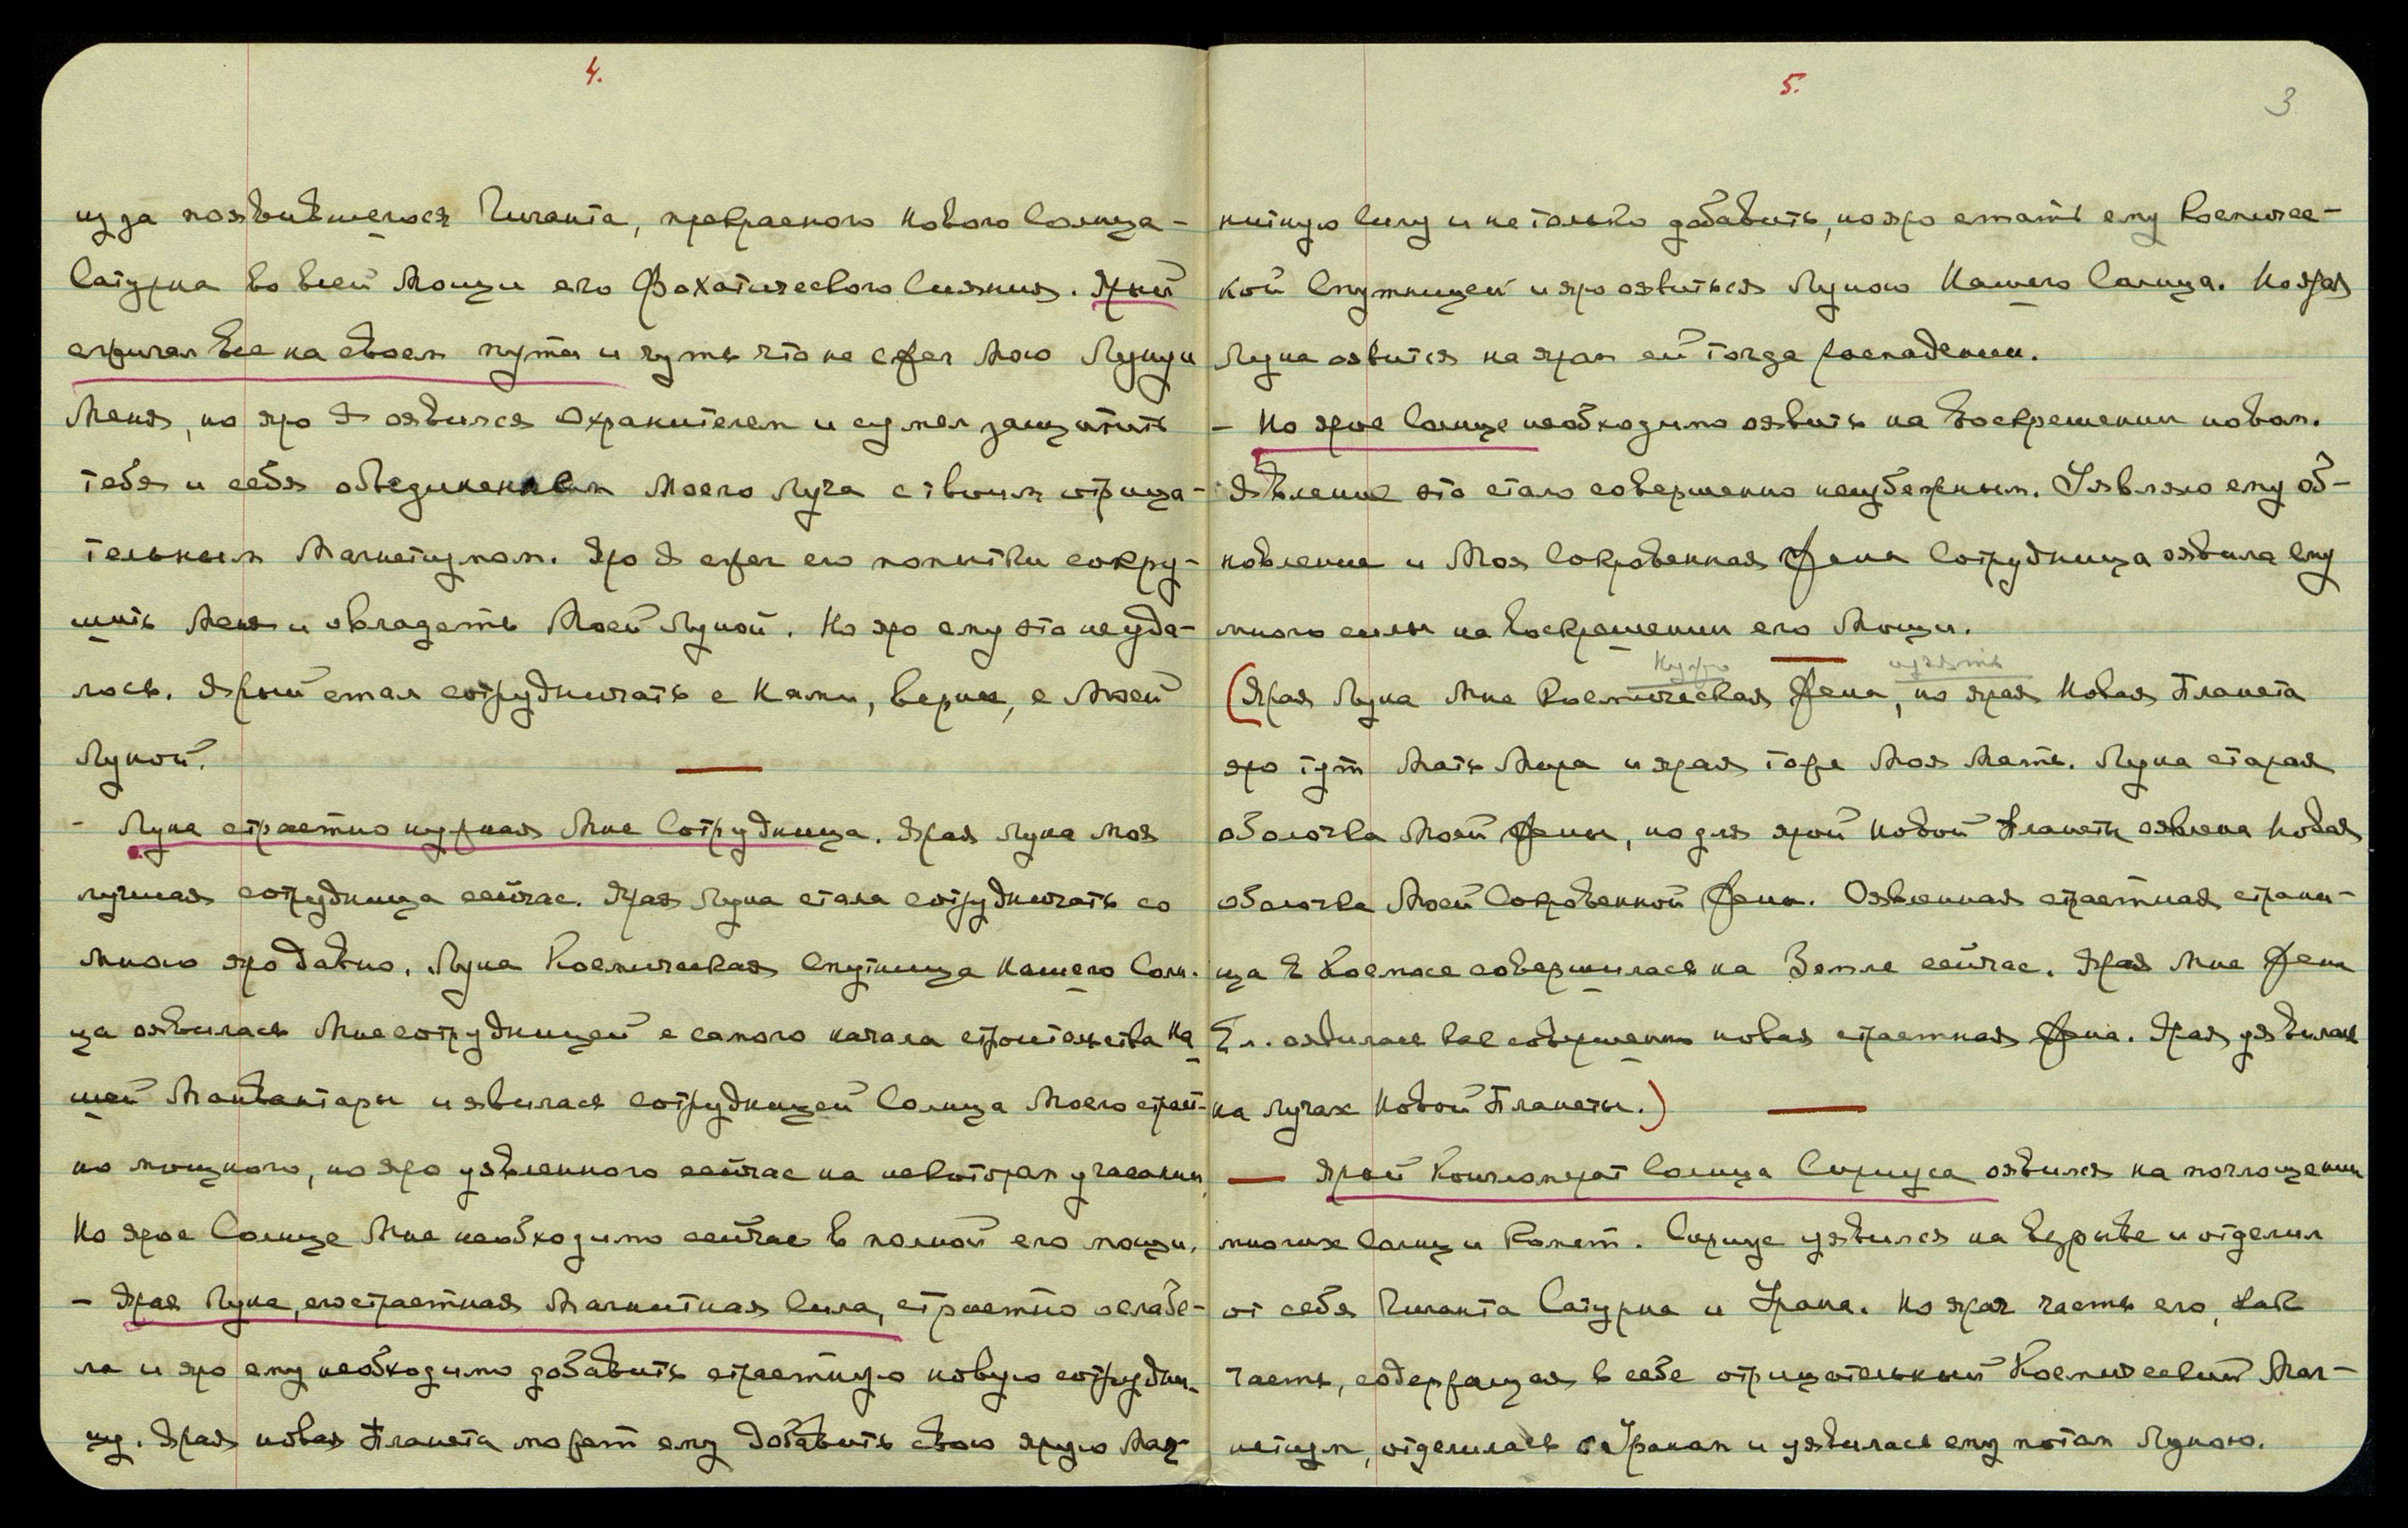 4.
из за появившегося Гиганта, прекрасного нового Солнца -
Сатурна во всей Мощи его Фохатического Сияния. Ярый
сжигал все на своем пути и чуть что не сжег Мою Луну и
Меня, но яро Я оявился Охранителем и сумел защитить
тебя и себя объединением Моего Луча с твоим отрица-
тельным Магнетизмом. Яро Я сжег его попытки сокру-
шить Меня и овладеть Моей Луной. Но яро ему это не уда-
лось. Ярый стал сотрудничать с Нами, верно, с Моей
Луной.
- Луна страстно нужная Мне Сотрудница. Ярая Луна моя
лучшая сотрудница сейчас. Ярая Луна стала сотрудничать со
Мною яро давно. Луна Космическая Спутница Нашего Солн-
ца оявилась Мне сотрудницей с самого начала строительства На
шей Манвантары и явилась сотрудницей Солнца Моего страст-
но мощного, но яро уявленного сейчас на некотором угасании.
Но ярое Солнце Мне необходимо сейчас в полной его мощи.
- Ярая Луна, его страстная Магнитная Сила, страстно ослабе-
ла и яро ему необходимо добавить страстную новую сотрудни-
цу. Ярая новая Планета может ему добавить свою ярую Маг-
5.
3
нитную Силу и не только добавить, но яро стать ему Космичес-
кой Спутницей и яро оявиться Луною Нашего Солнца. Но ярая
Луна оявится на яром ей тогда распадении.
- Но ярое Солнце необходимо оявить на Воскрешении новом.
Явление это стало совершенно неизбежным. Уявляю ему об-
новление и Моя Сокровенная Жена Сотрудница оявила Ему
много силы на Воскрешении его Мощи.
Нужно изъять
(Ярая Луна Мне Космическая Жена, но ярая Новая Планета
яро тут Мать Мира и ярая тоже Моя Мать. Луна старая
оболочка Моей Жены, но для ярой Новой Планеты оявлена Новая
оболочка Моей Сокровенной Жены. Оявленная страстная страни-
ца в Космосе совершилась на Земле сейчас. Ярая Мне Жена
Ел. оявилась как совершенно новая страстная Жена. Ярая уявилась
на лучах Новой Планеты.)
— Ярый Конгломерат Солнца Сириуса оявился на поглощении
многих Солнц и Комет. Сириус уявился на Взрыве и отделил
от себя Гиганта Сатурна и Урана. Но ярая часть его, как
часть, содержащая в себе отрицательный Космический Маг-
нетизм, отделилась с Ураном и уявилась ему потом Луною.